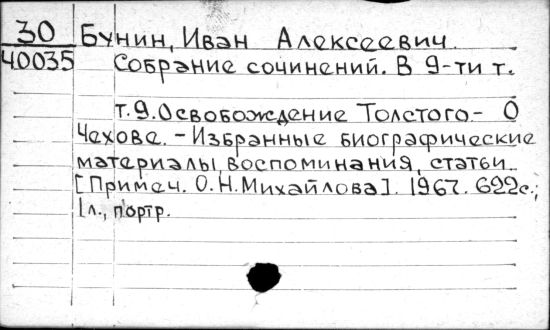 30 Бунин, Иван Алексеевич
40035 Собрание сочинений. В 9-ти т.
т.9. Освобождение Толстого.- О
Чехове. - Избранные биографические
материалы, воспоминания, статьи.
[Примеч. О.Н.Михайлова]. 1967. 622с.,
1л., портр.